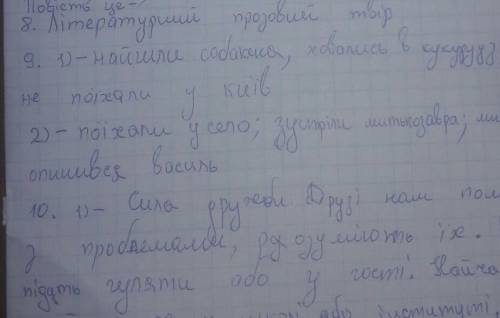 Повість це-
8. Літературний прозовий твір
9. 1)- найшли собакина, ховались в кукурузу
не поїхали у київ
2)- поїхали у село; зустріли митькозавра;
опинився василь
10. 1)- Сила дружби. Друзі нам
з проблемами, розуміють їх.
підуть гуляти або у гості.
або інституті,